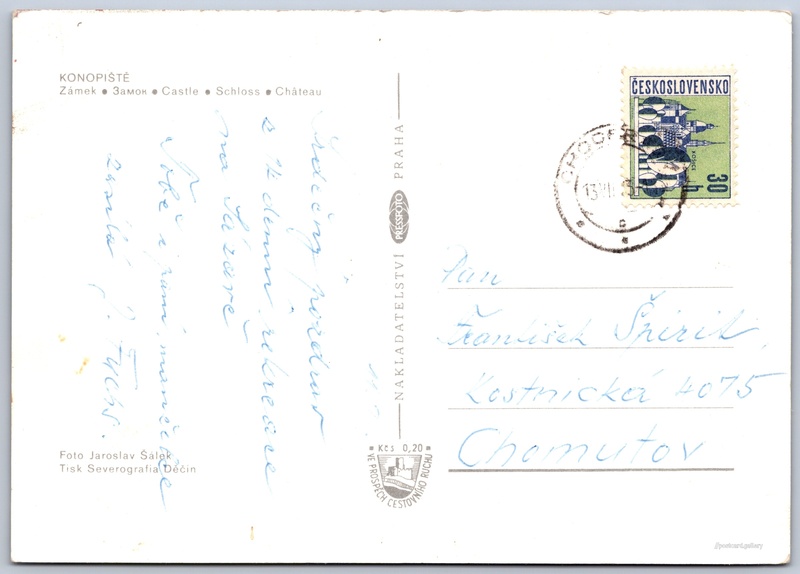 KONOPIŠTĚ
Zámek ● Замок ● Castle ● Schloss ● Château
Srdečný pozdrav
z 14 denní rekreace
na Sázavě
Tobě i paní manželce
zasílá J. Fuchs.
Foto Jaroslav Šálek
Tisk Severografia Děčín
NAKLADATELSTVÍ PRESSFOTO PRAHA
Kčs 0,20
VE PROSPĚCH CESTOVNÍHO RUCHU
ČESKOSLOVENSKO
KOŠICE
30 h
13.VII
c
Pan
František Špirit,
Kostnická 4075
Chomutov
postcard.gallery